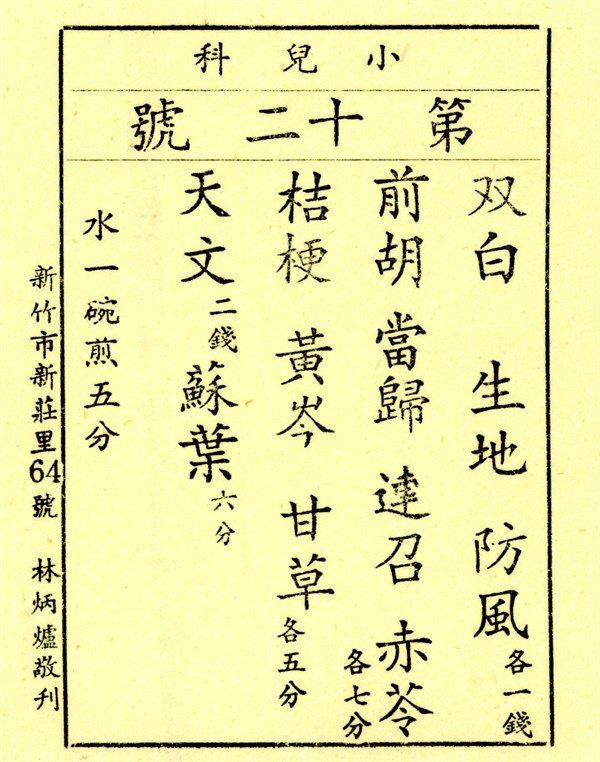 小兒科
第十二號
双白 生地 防風 各一錢
前胡 當歸 達召 赤苓 各七分
桔梗 黃岑 甘草 各五分
天文 二錢 蘇葉 六分
水一碗煎五分
新竹市新莊里64號 林炳爐敬刊